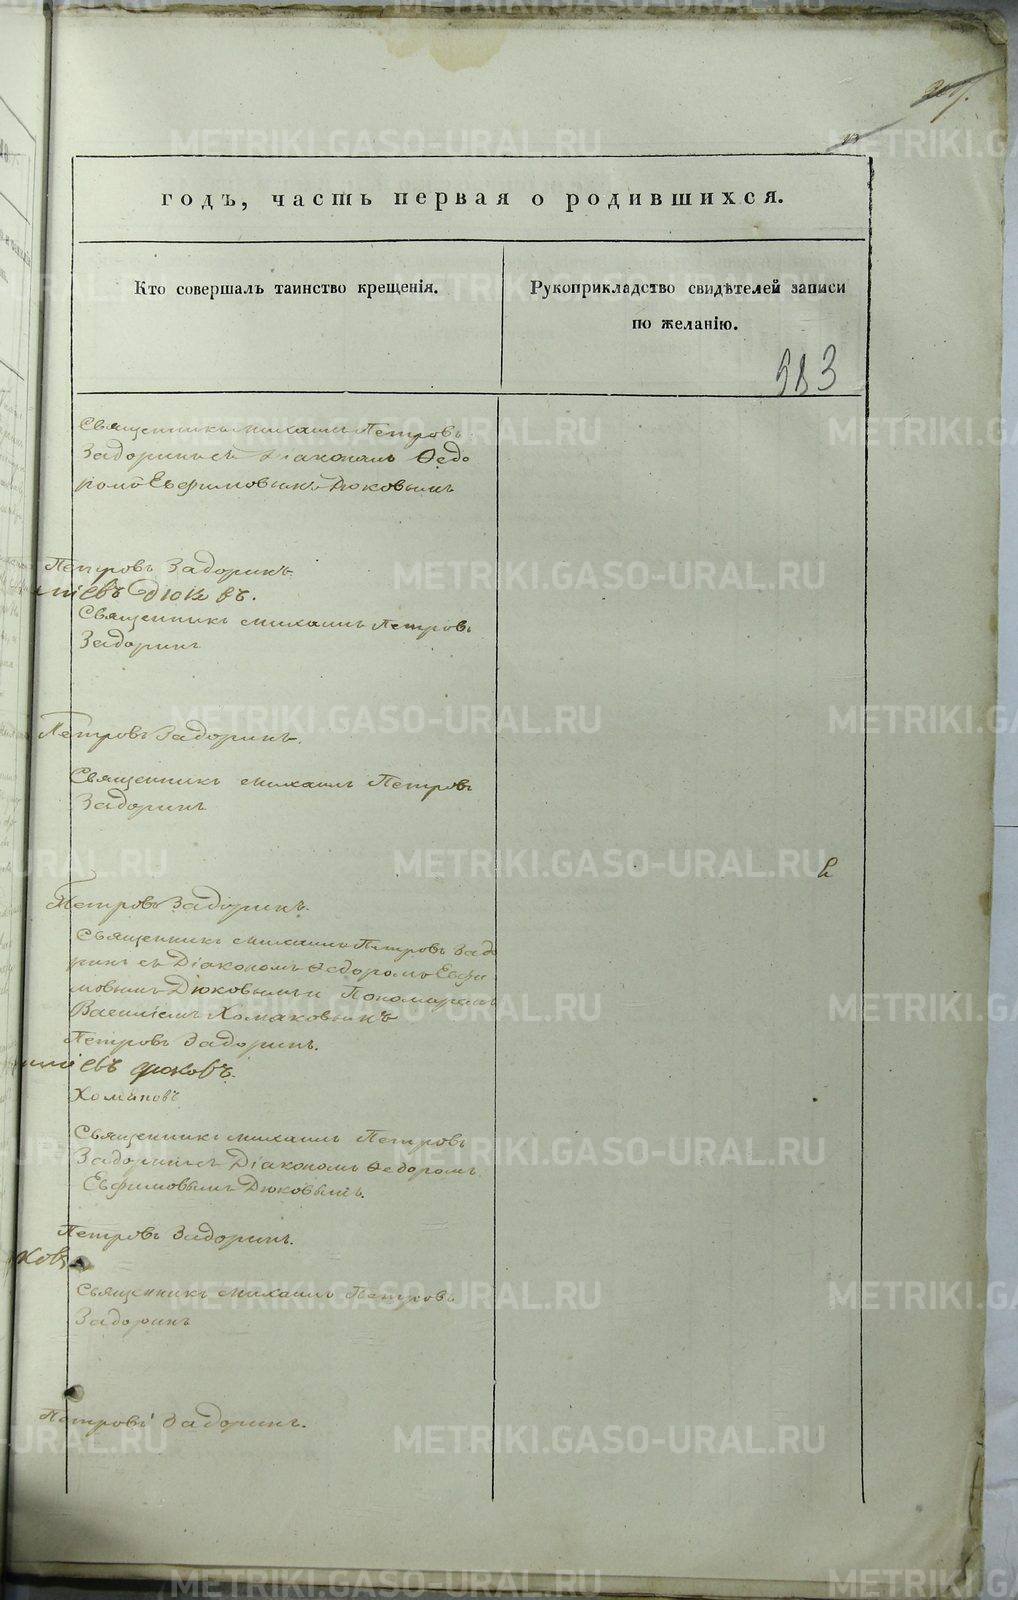 годъ, часть первая о родившихся.
Кто совершалъ таинство крещенія.
Рукоприкладство свидѣтелей записи
по желанію.
583
Священникъ Михаилъ Петровъ
Задоринъ съ Діакономъ Ѳедо
ромъ Евфимовымъ Дюковымъ
Петровъ Задоринъ.
Дюковъ.
Священникъ Михаилъ Петровъ
Задоринъ
Петровъ Задоринъ.
Священникъ Михаилъ Петровъ
Задоринъ
Петровъ Задоринъ.
Священникъ Михаилъ Петровъ Задо
ринъ съ Діакономъ Ѳедоромъ Евфи
мовымъ Дюковымъ и Пономаремъ
Василіемъ Хомяковымъ
Петровъ Задоринъ.
Дюковъ.
Хомяковъ
Священникъ Михаилъ Петровъ
Задоринъ съ Діакономъ Ѳедоромъ
Евфимовымъ Дюковымъ.
Петровъ Задоринъ.
ковъ
Священникъ Михаилъ Петровъ
Задоринъ
Петровъ Задоринъ.
METRIKI.GASO-URAL.RU